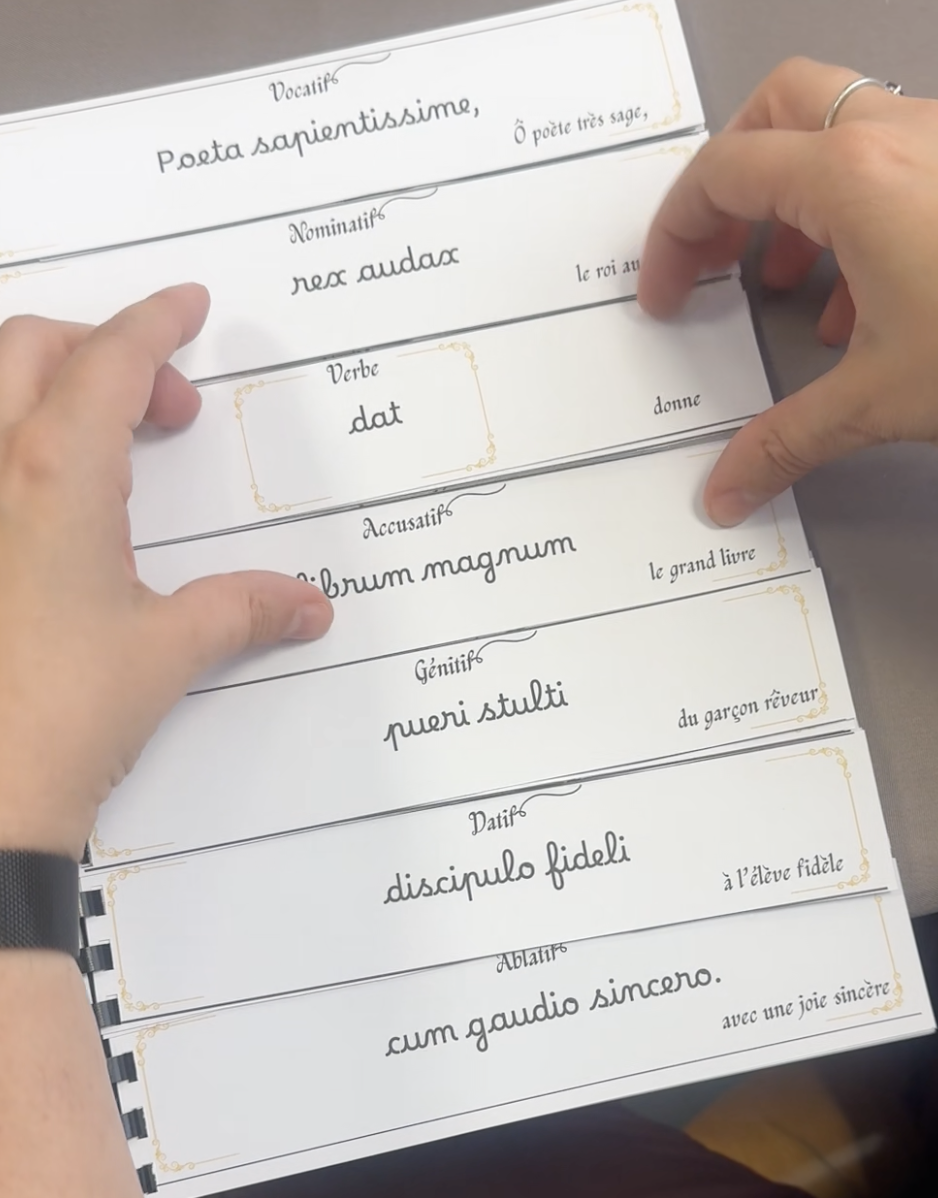 Vocatif
Poeta sapientissime,
Ô poète très sage,
Nominatif
rex audax
le roi
Verbe
dat
donne
Accusatif
magnum
le grand livre
Génitif
pueri stulti
du garçon rêveur
Datif
discipulo fideli
à l'élève fidèle
Ablatif
cum gaudio sincero.
avec une joie sincère